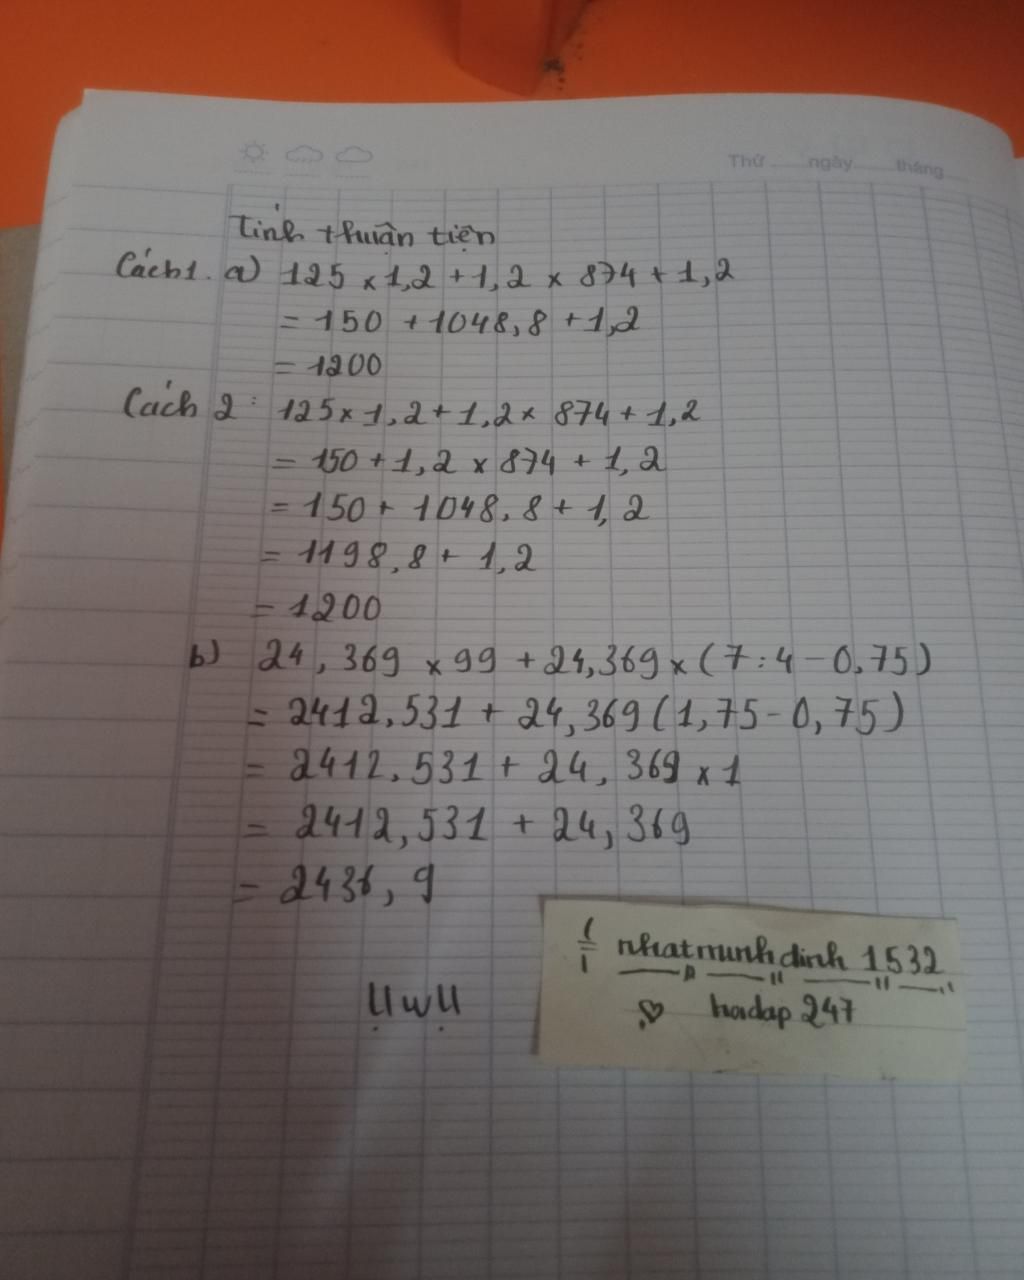 Thứ ngày tháng
Tính thuận tiện
Cách 1. a) 125 x 1,2 + 1,2 x 874 + 1,2
= 150 + 1048,8 + 1,2
= 1200
Cách 2: 125 x 1,2 + 1,2 x 874 + 1,2
= 150 + 1,2 x 874 + 1,2
= 150 + 1048,8 + 1,2
= 1198,8 + 1,2
= 1200
b) 24,369 x 99 + 24,369 x (7:4 - 0,75)
= 2412,531 + 24,369 (1,75 - 0,75)
= 2412,531 + 24,369 x 1
= 2412,531 + 24,369
= 2436,9
nhatminhdinh 1532
hoidap 247
UwU